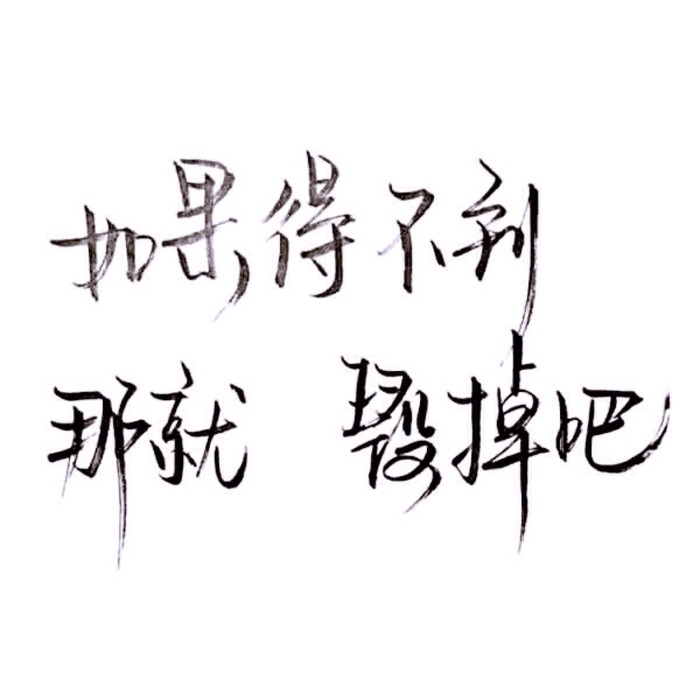 如果得不到
那就 毁掉吧